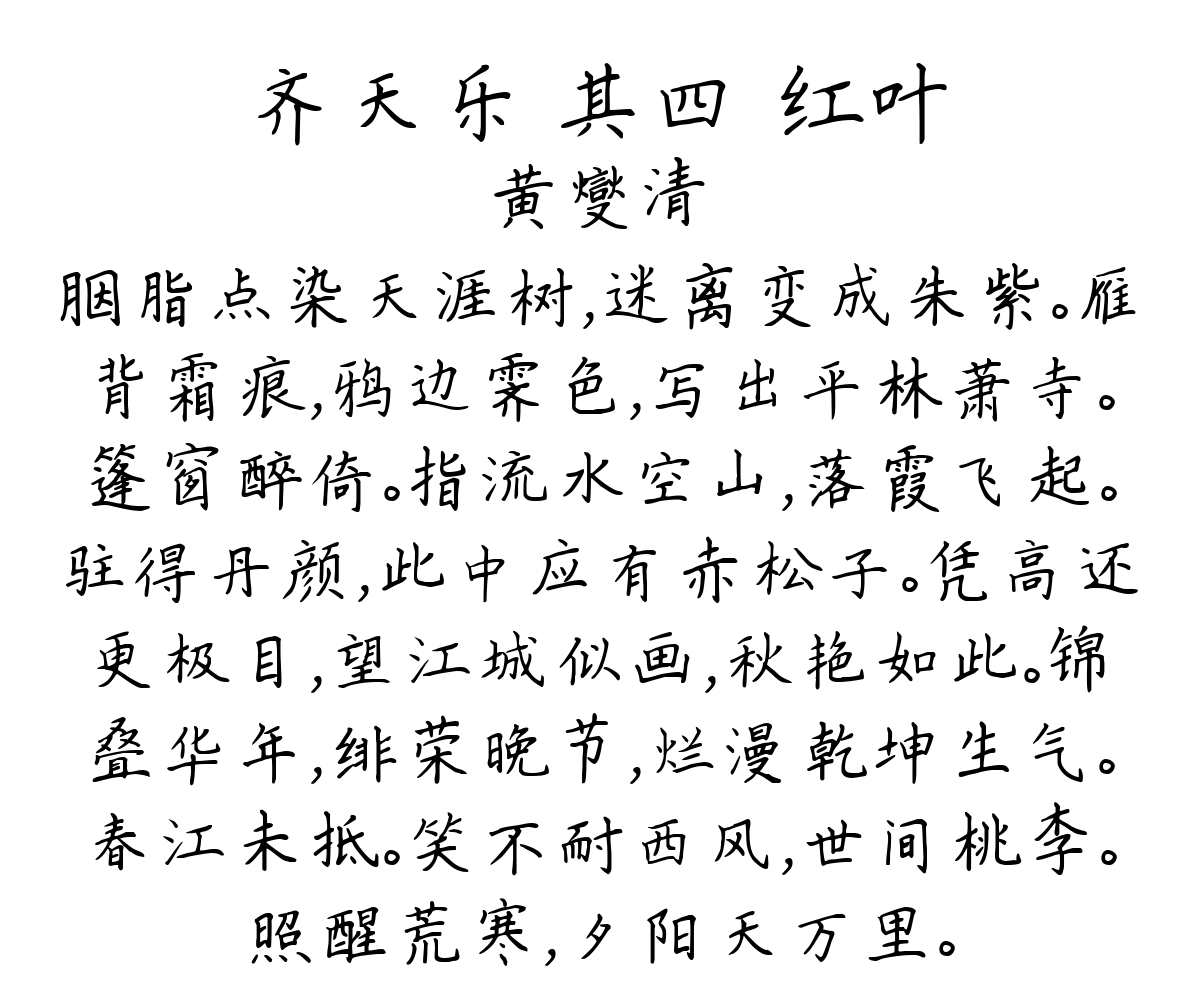 齐天乐 其四 红叶
黄燮清
胭脂点染天涯树,迷离变成朱紫。雁
背霜痕,鸦边霁色,写出平林萧寺。
篷窗醉倚。指流水空山,落霞飞起。
驻得丹颜,此中应有赤松子。凭高还
更极目,望江城似画,秋艳如此。锦
叠华年,绯荣晚节,烂漫乾坤生气。
春江未抵。笑不耐西风,世间桃李。
照醒荒寒,夕阳天万里。